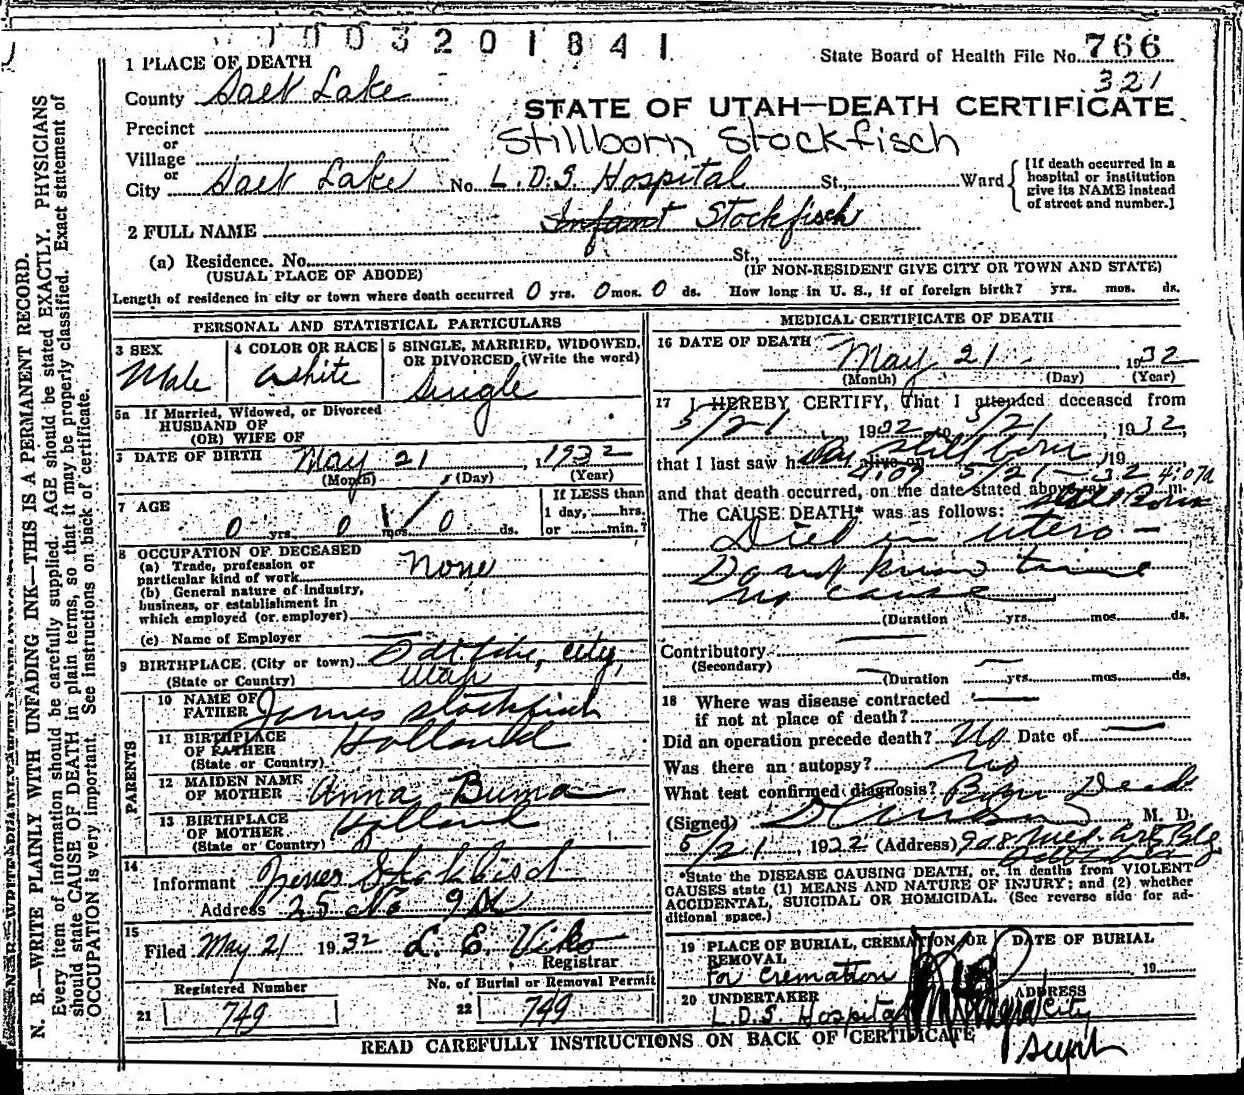 003201841
State Board of Health File No. 766
321
1 PLACE OF DEATH
County Salt Lake
STATE OF UTAH—DEATH CERTIFICATE
Precinct
or
Village
or
Stillborn Stockfisch
City Salt Lake No. L.D.S. Hospital St., Ward
[If death occurred in a hospital or institution give its NAME instead of street and number.]
2 FULL NAME Infant Stockfisch
(a) Residence. No. St.,
(USUAL PLACE OF ABODE) (IF NON-RESIDENT GIVE CITY OR TOWN AND STATE)
Length of residence in city or town where death occurred 0 yrs. 0 mos. 0 ds. How long in U. S., if of foreign birth? yrs. mos. ds.
PERSONAL AND STATISTICAL PARTICULARS
3 SEX
Male
4 COLOR OR RACE
White
5 SINGLE, MARRIED, WIDOWED, OR DIVORCED (Write the word)
Single
5a If Married, Widowed, or Divorced
HUSBAND OF
(OR) WIFE OF
DATE OF BIRTH May 21, 1932
(Month) (Day) (Year)
7 AGE
0 yrs. 0 mos. 0 ds.
If LESS than
1 day, hrs.
or min.?
8 OCCUPATION OF DECEASED
(a) Trade, profession or
particular kind of work None
(b) General nature of industry,
business, or establishment in
which employed (or employer)
(c) Name of Employer
9 BIRTHPLACE (City or town) Salt Lake City,
(State or Country) Utah
PARENTS
10 NAME OF FATHER James Stockfisch
11 BIRTHPLACE OF FATHER Holland
(State or Country)
12 MAIDEN NAME OF MOTHER Anna Buma
13 BIRTHPLACE OF MOTHER Holland
(State or Country)
14
Informant Stockfisch
Address 25 No 9
15
Filed May 21 1932 L. E.
Registrar
Registered Number
21 749
No. of Burial or Removal Permit
22 749
MEDICAL CERTIFICATE OF DEATH
16 DATE OF DEATH May 21 1932
(Month) (Day) (Year)
17 I HEREBY CERTIFY, That I attended deceased from
5/21, 1932 to 5/21, 1932,
that I last saw h alive on Still born, 19
4:07 5/21-32 4:07A
and that death occurred, on the date stated above, at m.
The CAUSE DEATH* was as follows: Still Born
Died in utero —
Do not know time
no cause
(Duration yrs. mos. ds.
Contributory
(Secondary)
(Duration yrs. mos. ds.
18 Where was disease contracted
if not at place of death?
Did an operation precede death? No Date of
Was there an autopsy? No
What test confirmed diagnosis? Born Dead
(Signed) M. D.
5/21, 1932 (Address) 908 Med. Arts Blg
*State the DISEASE CAUSING DEATH, or, in deaths from VIOLENT
CAUSES state (1) MEANS AND NATURE OF INJURY; and (2) whether
ACCIDENTAL, SUICIDAL OR HOMICIDAL. (See reverse side for ad-
ditional space.)
19 PLACE OF BURIAL, CREMATION OR REMOVAL
For Cremation
DATE OF BURIAL
19
20 UNDERTAKER
L.D.S. Hospital
ADDRESS
City
Supt
READ CAREFULLY INSTRUCTIONS ON BACK OF CERTIFICATE
N. B.—WRITE PLAINLY WITH UNFADING INK—THIS IS A PERMANENT RECORD.
Every item of information should be carefully supplied. AGE should be stated EXACTLY. PHYSICIANS
should state CAUSE OF DEATH in plain terms, so that it may be properly classified. Exact statement of
OCCUPATION is very important. See instructions on back of certificate.